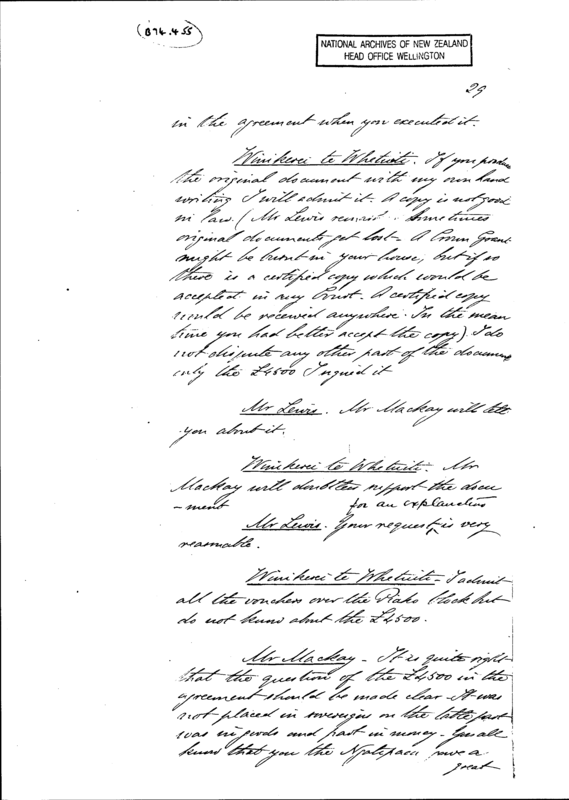 (B74.455)
NATIONAL ARCHIVES OF NEW ZEALAND
HEAD OFFICE WELLINGTON
29
in the agreement when you executed it.
Winikerei te Whetuiti. If you produce
the original document with my own hand
writing I will admit it. A copy is not good
in law. (Mr Lewis Sometimes
original documents get lost - A Crown Grant
might be burnt in your house, but if so
there is a certified copy which would be
accepted in any Court. A certified copy
would be received anywhere. In the mean
time you had better accept the copy). I do
not dispute any other part of the document
only the £4500 I signed it
Mr Lewis. Mr Mackay will tell
you about it.
Winikerei te Whetuiti. Mr
Mackay will doubtless support the docu
-ment
for an explanation
Mr Lewis. Your request is very
reasonable.
Winikerei te Whetuiti - I admit
all the vouchers over the Piako Block but
do not know about the £4500.
Mr Mackay - It is quite right
that the question of the £4500 in the
agreement should be made clear - It was
not placed in sovereigns on the table part
was in goods and part in money - You all
know that you the Ngatipaoa owe a
great